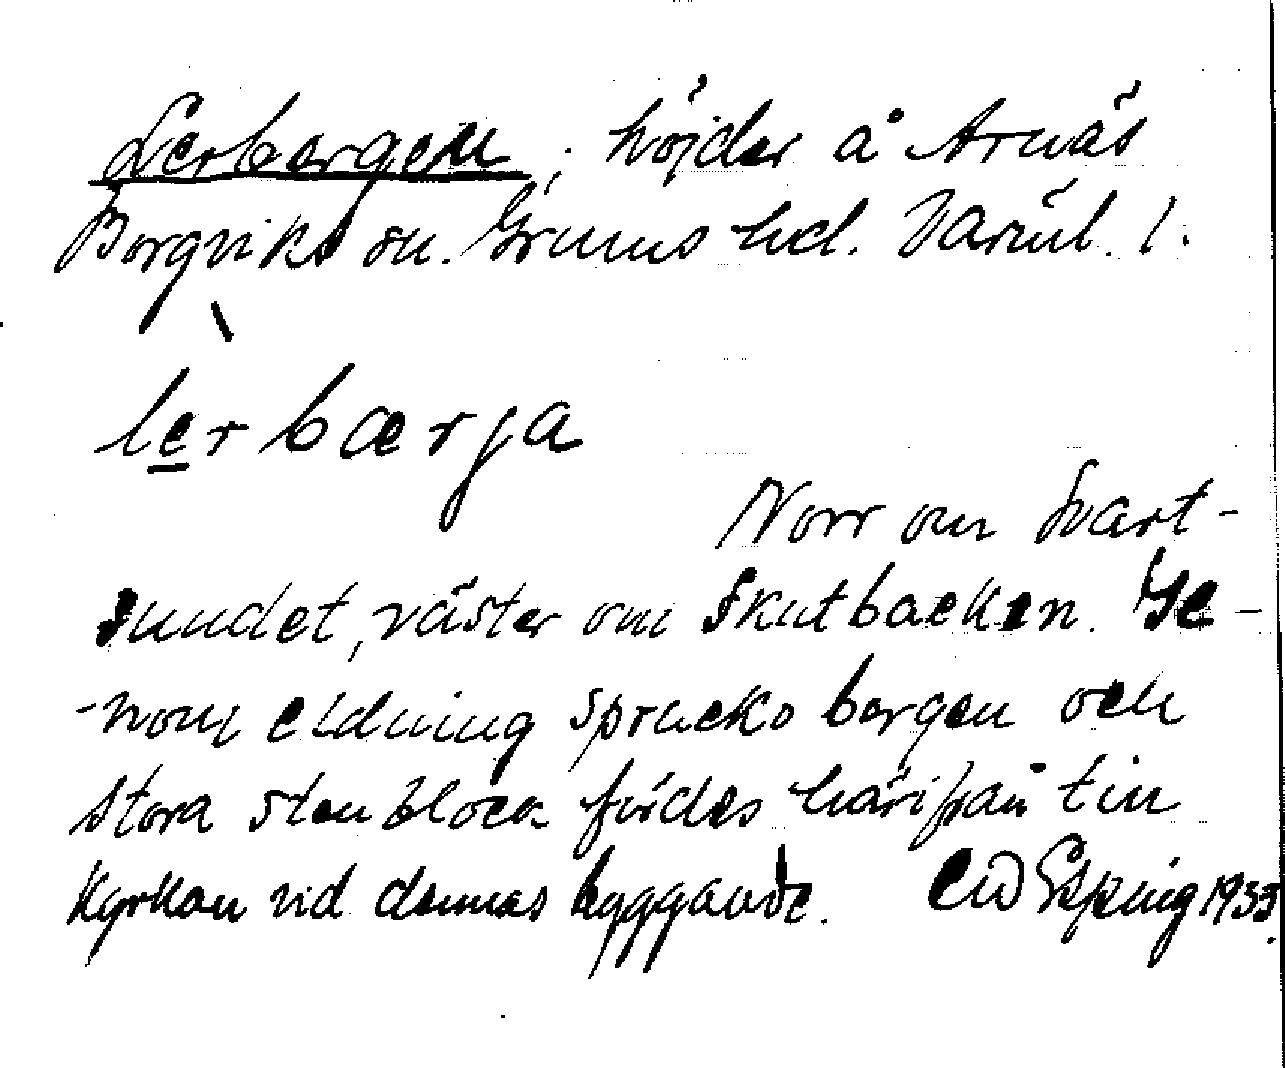 Lerbergen, höjder å Arnäs
Borgviks sn. Grums hd. Värml. l.
lerbærja
Norr om Svart-
sundet, väster om Skutbacken. Ge-
-nom eldning sprucko bergen och
stora stenblock fördes härifrån till
Kyrkan vid dennas byggande. CW Espring 1933.